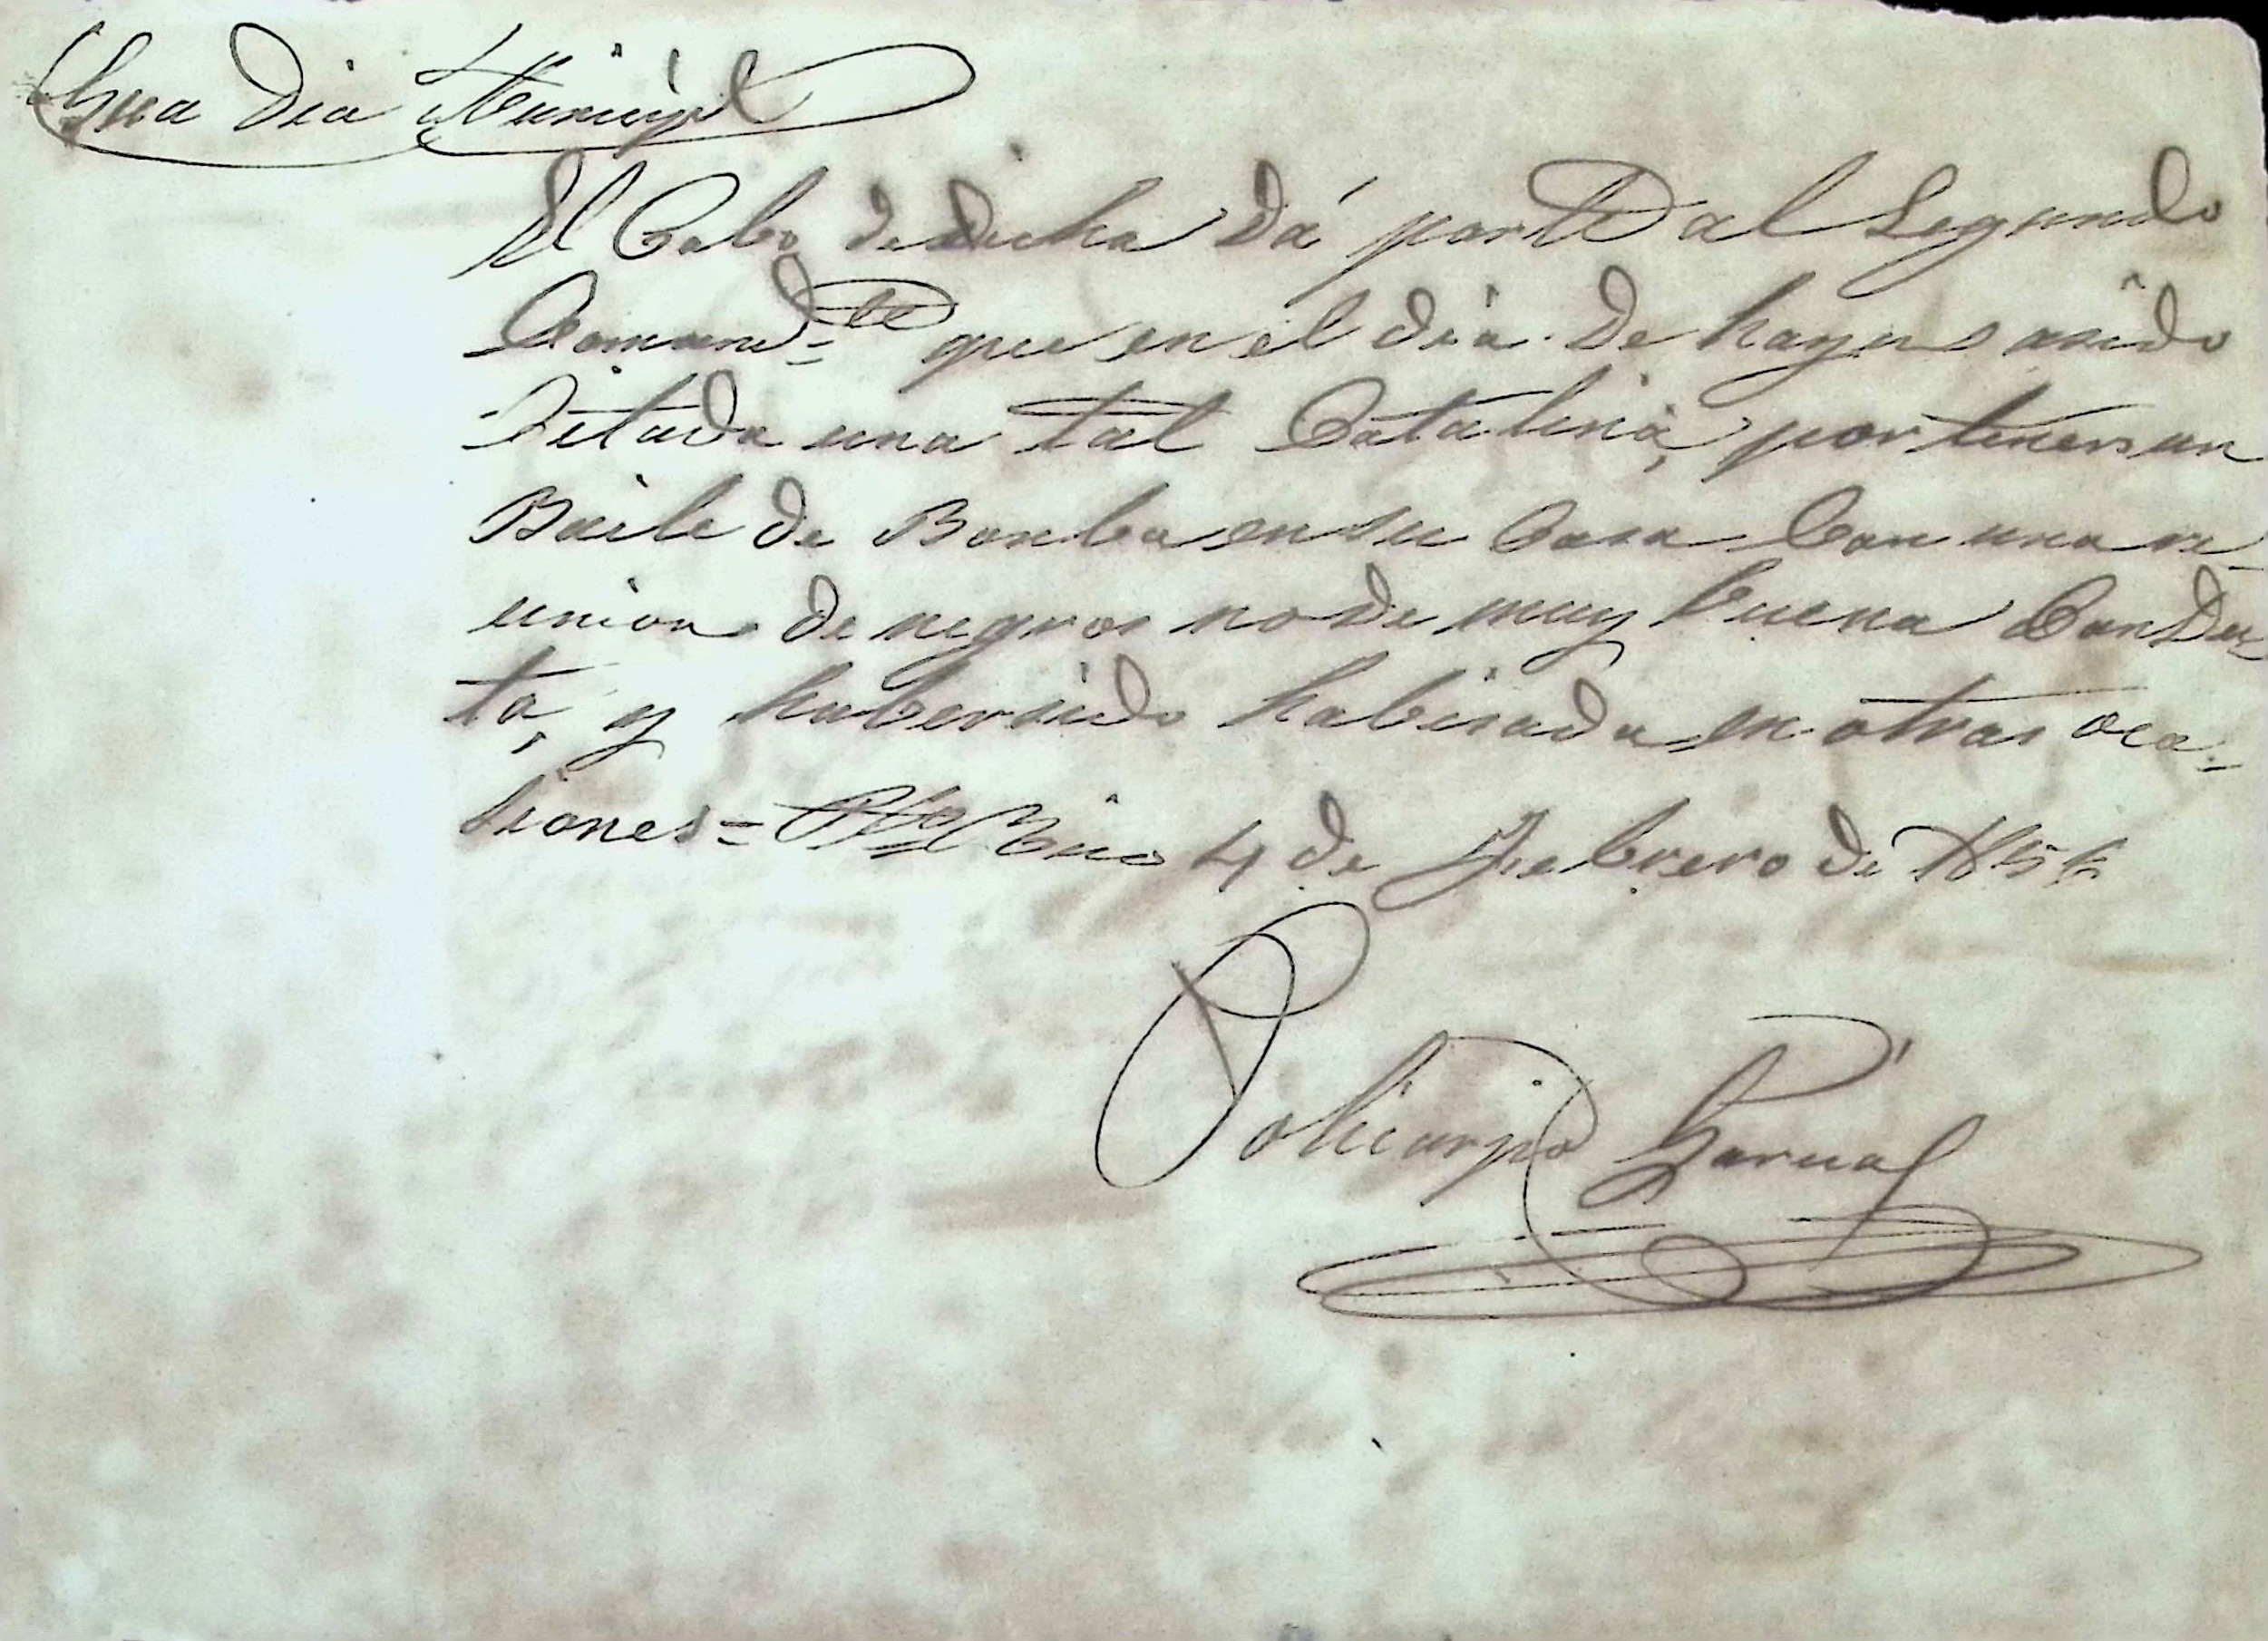 Gua dia Municipl
El Cabo de dicha dá parte al Segundo
Comand=te que en el dia de hay es asido
Citada una tal Catalina, por tener un
Baile de Bonba en su Casa Con una re
union de negros no de muy buena Condu
ta, y haber sido habisada en otras oca-
siones= Pto Rico 4 de Febrero de 185
Policarpo